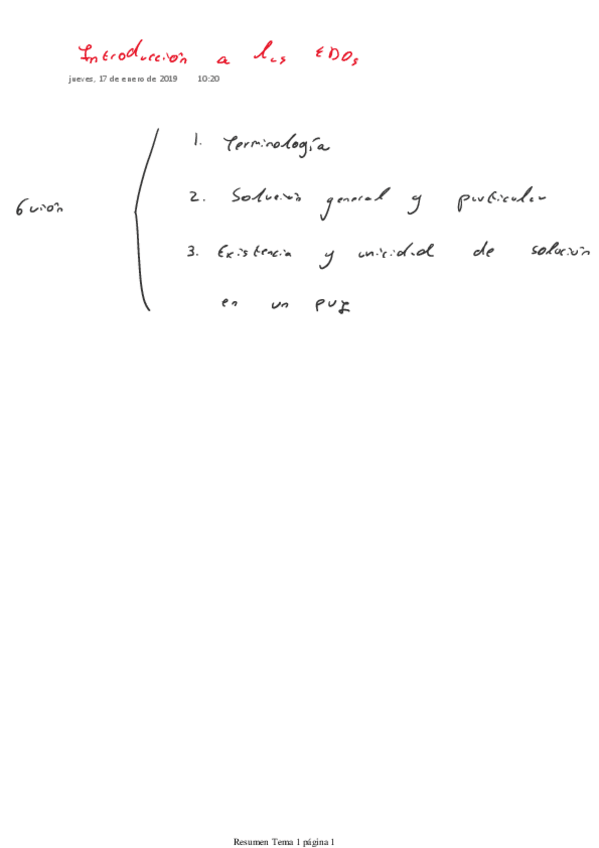 Introducción a las EDOs
jueves, 17 de enero de 2019 10:20
1. Terminología
Guión
2. Solución general y particular
3. Existencia y unicidad de solución
en un PVI
Resumen Tema 1 página 1